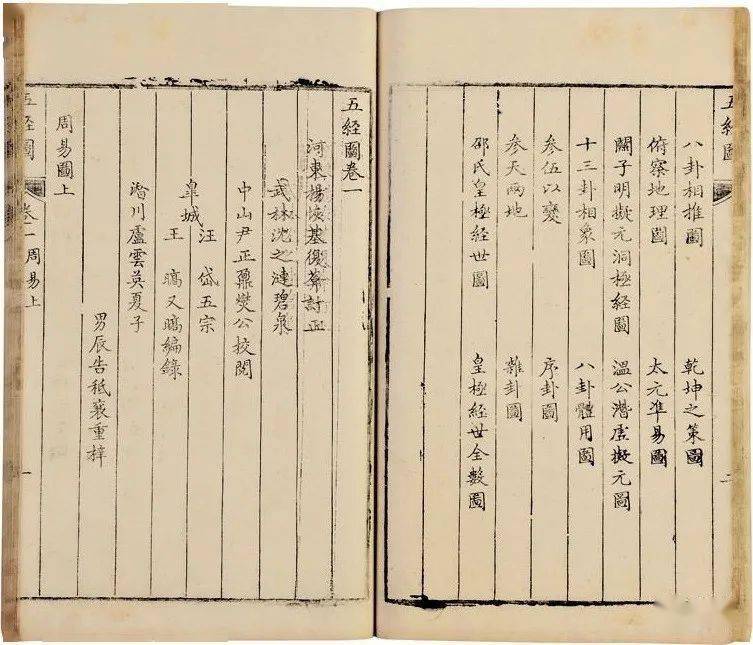 五經圖
二
八卦相推圖 乾坤之策圖
俯察地理圖 太元準易圖
關子明擬元洞極經圖 溫公潛虛擬元圖
十三卦相象圖 八卦體用圖
參伍以變 序卦圖
參天兩地 雜卦圖
邵氏皇極經世圖 皇極經世全數圖
五經圖卷一
河東楊恢基復菴討正
武林沈之漣碧泉
中山尹正鼐燮公校閱
皐城
汪岱五宗
王暠又暠編錄
潛川盧雲英夏子
男辰告秪襄重梓
周易圖上
五經圖
卷一周易上
一